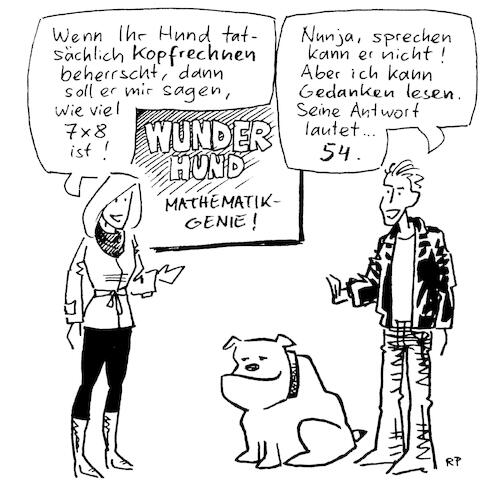 Wenn Ihr Hund tat-
sächlich Kopfrechnen
beherrscht, dann
soll er mir sagen,
wie viel
7x8
ist!
Nunja, sprechen
kann er nicht!
Aber ich kann
Gedanken lesen.
Seine Antwort
lautet...
54.
WUNDER
HUND
MATHEMATIK-
GENIE!
RP